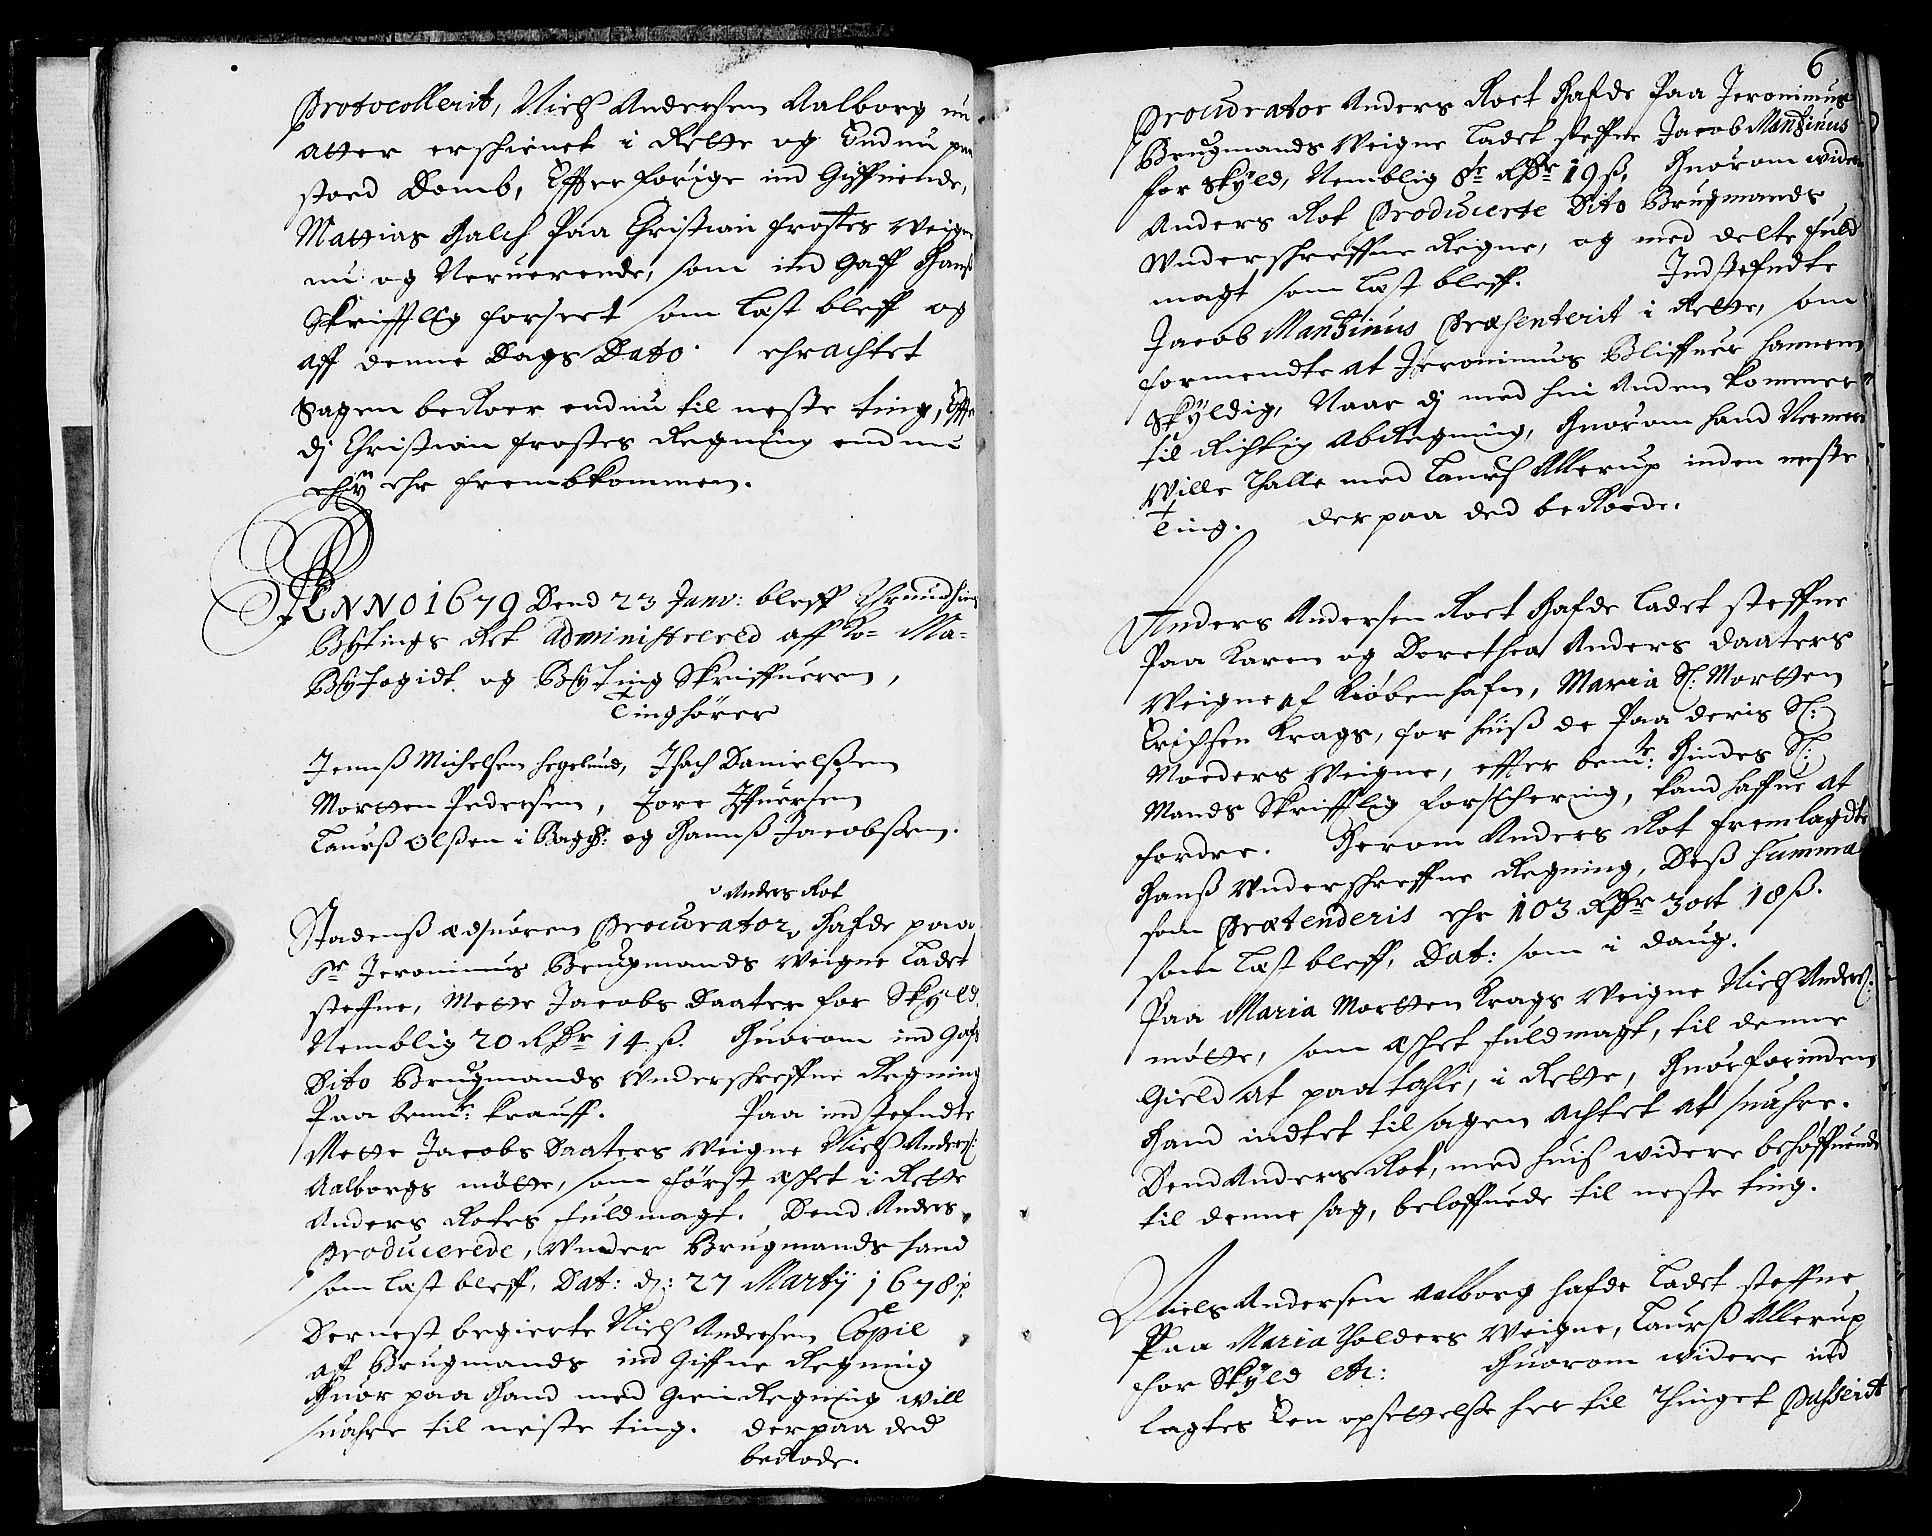 Protocollerit, Niels Andersen Aalborg nu
atter erschienet i Rette og Endnu paa
stoed Domb, Effter forige ind Giffvende,
Mattias Halch Paa Christian frostes Veigne
nu og Nerverende, som ind Gaff Hans
Skrifftlig forsæt som Læst bleff og
aff denne Dags Dato. erachtet
Sagen beRoer endnu til neste ting, Effter
dj Christian frostes Regning endnu
ehr frembkommen.
ANNO 1679 Dend 23 Janv: bleff Thrundhiems
Bytings Ret administrered aff Ko: Ma:
Byfogidt og Byting Skriffueren,
Tinghörer
Jennß Michelsen Hegelund, Isach Danielßen
Mortten Pedersen, Tore Iffuersen
Laurß Olßen i Bagh: og Hannß Jacobßen.
Anders Rot
Stadenß edsuoren Procurator Hafde paa
Sr Jeronimus Brugmands Veigne Ladet
steffne, Mette Jacobs Daater for Skyld.
Nemblig 20 Rdr 14 ß. Huorom ind Gaff
Dito Brugmands Underschreffne Regning
Paa bemte: krauff. Paa indstefndte
Mette Jacobs Daaters Veigne Niels Anders:
Aalborgs mötte, som först esket i Rette
Anders Rotes fuldmagt. Dend Anders
Producerede, Under Brugmands Hand
som Læst bleff, Dat: d: 27 Martij 1678
Dernest begierte Niels Andersen Copie
aff Brugmands ind Giffne Regning
Huor paa Hand med Gien Regning will
suahre til neste ting. derpaa ded
beRode.
6
Procurator Anders Roet Hafde Paa Jeronimus
Brugmands Veigne Ladet steffne Jacob Mantzinus
for Skyld, Nemblig 8 Rdr 19 ß, Huorom widere
Anders Rot Producerte Dito Brugmands
Underschreffne Regne, og med delte fuld
magt som Læst bleff. Indstefndte
Jacob Mantzinus Præsenterit i Rette, som
formendte at Jeronimus Bliffuer hannem
Skyldig, Naar dj med hin Anden kommer
til Richtig AbRegning, Huorom hand Nermere
Wille Thalle med Laurß Allerup inden neste
Ting. derpaa ded beRoede.
Anders Andersen Roet Hafde Ladet steffne
Paa Karen og Dorethea Anders daaters
Veigne af Kiöbenhafn, Maria Sl: Mortten
Erichsen Krags, for huiß de Paa deris Sl:
Moeders Veigne, effter bemte: Hindes Sl:
Mands Skrifftlig forsichering, kand haffue at
fordre. Herom Anders Rot fremlagdte
Hanß Underschreffne Regning, Deß Summa
som Prætenderis ehr 103 Rdr 3 ort 18 ß.
som Læst bleff, Dat: som i daug.
Paa Maria Mortten Krags Veigne Niels Anders:
mötte, som esket fuldmagt, til denne
Gield at paatahle, i Rette, Huorforinden
Hand indtet til sagen achtet at suahre.
Dend Anders Rot, med huis widere behöffuende
til denne sag, beloffuede til neste ting.
Niels Andersen Aalborg hafde Ladet steffne
Paa Maria Tholders Veigne, Laurß Allerup
for Skyld etc: Huorom widere ind
lagtes Een opsettelse her til Thinget Passerit